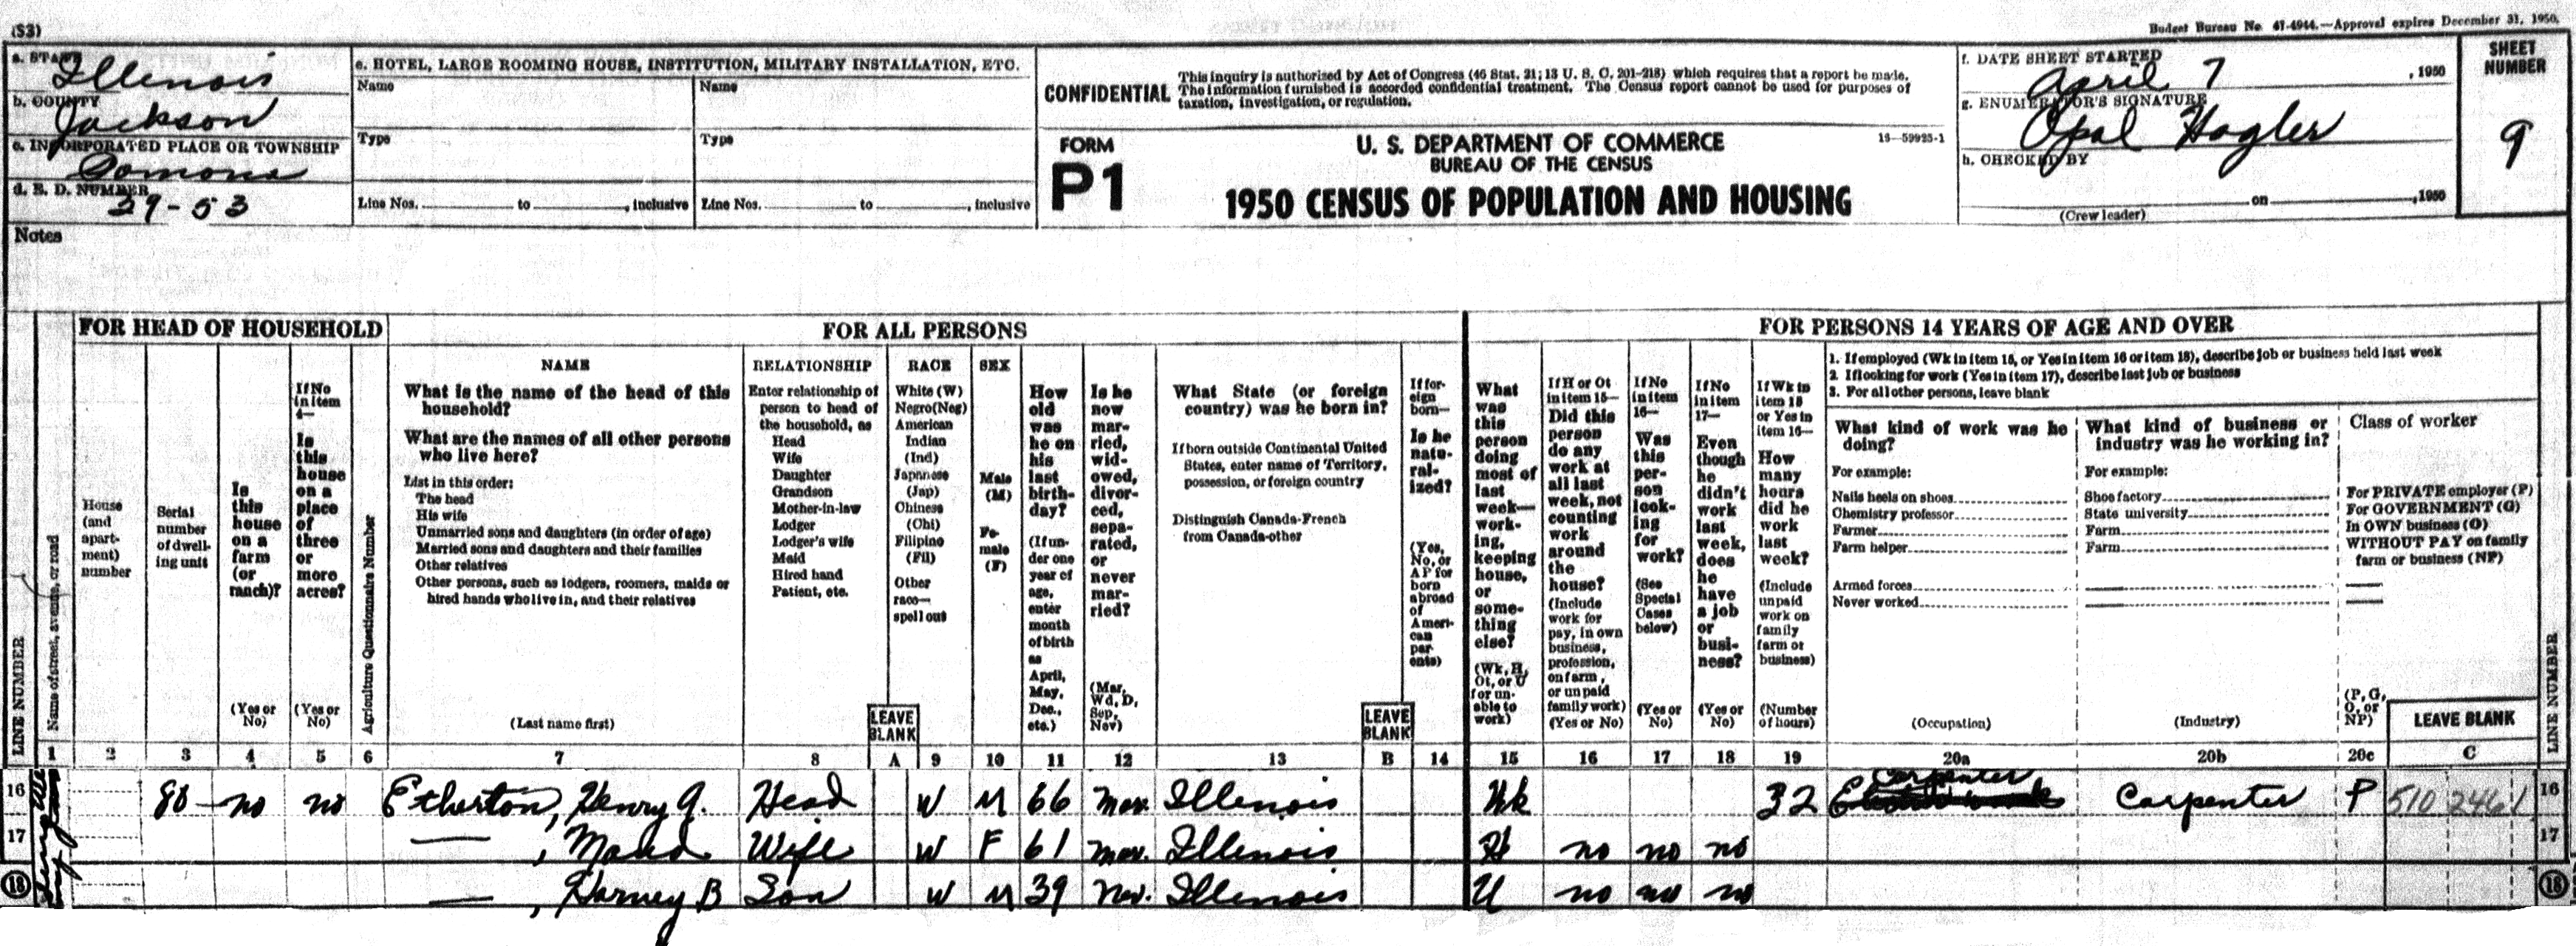 (S3)
Budget Bureau No. 41-4944.—Approval expires December 31, 1950.
a. STATE Illinois
b. COUNTY Jackson
c. INCORPORATED PLACE OR TOWNSHIP Pomona
d. E. D. NUMBER 39-53
e. HOTEL, LARGE ROOMING HOUSE, INSTITUTION, MILITARY INSTALLATION, ETC.
Name Name
Type Type
Line Nos. to , inclusive Line Nos. to , inclusive
CONFIDENTIAL
This inquiry is authorized by Act of Congress (46 Stat. 21; 13 U. S. C. 201-218) which requires that a report be made.
The information furnished is accorded confidential treatment. The Census report cannot be used for purposes of
taxation, investigation, or regulation.
FORM
P1
U. S. DEPARTMENT OF COMMERCE
BUREAU OF THE CENSUS
1950 CENSUS OF POPULATION AND HOUSING
16—59925-1
f. DATE SHEET STARTED
April 7 , 1950
g. ENUMERATOR'S SIGNATURE
Opal Hagler
h. CHECKED BY
on , 1950
(Crew leader)
SHEET
NUMBER
9
Notes
FOR HEAD OF HOUSEHOLD
FOR ALL PERSONS
FOR PERSONS 14 YEARS OF AGE AND OVER
LINE NUMBER
Name of street, avenue, or road
House
(and
apart-
ment)
number
Serial
number
of dwell-
ing unit
Is
this
house
on a
farm
(or
ranch)?
(Yes or
No)
If No
in item
4—
Is
this
house
on a
place
of
three
or
more
acres?
(Yes or
No)
Agriculture Questionnaire Number
NAME
What is the name of the head of this
household?
What are the names of all other persons
who live here?
List in this order:
The head
His wife
Unmarried sons and daughters (in order of age)
Married sons and daughters and their families
Other relatives
Other persons, such as lodgers, roomers, maids or
hired hands who live in, and their relatives
(Last name first)
RELATIONSHIP
Enter relationship of
person to head of
the household, as
Head
Wife
Daughter
Grandson
Mother-in-law
Lodger
Lodger's wife
Maid
Hired hand
Patient, etc.
LEAVE
BLANK
RACE
White (W)
Negro(Neg)
American
Indian
(Ind)
Japanese
(Jap)
Chinese
(Chi)
Filipino
(Fil)
Other
race—
spell out
SEX
Male
(M)
Fe-
male
(F)
How
old
was
he on
his
last
birth-
day?
(If un-
der one
year of
age,
enter
month
of birth
as
April,
May,
Dec.,
etc.)
Is he
now
mar-
ried,
wid-
owed,
divor-
ced,
sepa-
rated,
or
never
mar-
ried?
(Mar,
Wd, D,
Sep,
Nev)
What State (or foreign
country) was he born in?
If born outside Continental United
States, enter name of Territory,
possession, or foreign country
Distinguish Canada-French
from Canada-other
LEAVE
BLANK
If for-
eign
born—
Is he
natu-
ral-
ized?
(Yes,
No, or
AP for
born
abroad
of
Ameri-
can
par-
ents)
What
was
this
person
doing
most of
last
week—
work-
ing,
keeping
house,
or
some-
thing
else?
(Wk, H,
Ot, or U
for un-
able to
work)
If H or Ot
in item 15—
Did this
person
do any
work at
all last
week, not
counting
work
around
the
house?
(Include
work for
pay, in own
business,
profession,
on farm,
or unpaid
family work)
(Yes or No)
If No
in item
16—
Was
this
per-
son
look-
ing
for
work?
(See
Special
Cases
below)
(Yes or
No)
If No
in item
17—
Even
though
he
didn't
work
last
week,
does
he
have
a job
or
busi-
ness?
(Yes or
No)
If Wk in
item 15
or Yes in
item 16—
How
many
hours
did he
work
last
week?
(Include
unpaid
work on
family
farm or
business)
(Number
of hours)
1. If employed (Wk in item 15, or Yes in item 16 or item 18), describe job or business held last week
2. If looking for work (Yes in item 17), describe last job or business
3. For all other persons, leave blank
What kind of work was he
doing?
For example:
Nails heels on shoes
Chemistry professor
Farmer
Farm helper
Armed forces
Never worked
(Occupation)
What kind of business or
industry was he working in?
For example:
Shoe factory
State university
Farm
Farm
(Industry)
Class of worker
For PRIVATE employer (P)
For GOVERNMENT (G)
In OWN business (O)
WITHOUT PAY on family
farm or business (NP)
(P, G,
O, or
NP)
LEAVE BLANK
LINE NUMBER
1 2 3 4 5 6 7 8 A 9 10 11 12 13 B 14 15 16 17 18 19 20a 20b 20c C
16 80 no no Etherton, Henry A. Head W M 66 Mar. Illinois Wk 32 Carpenter Carpenter P 510 246 1 16
17 — , Maud Wife W F 61 Mar. Illinois H no no no 17
18 — , Harvey B Son W M 39 Nev. Illinois U no no no 18